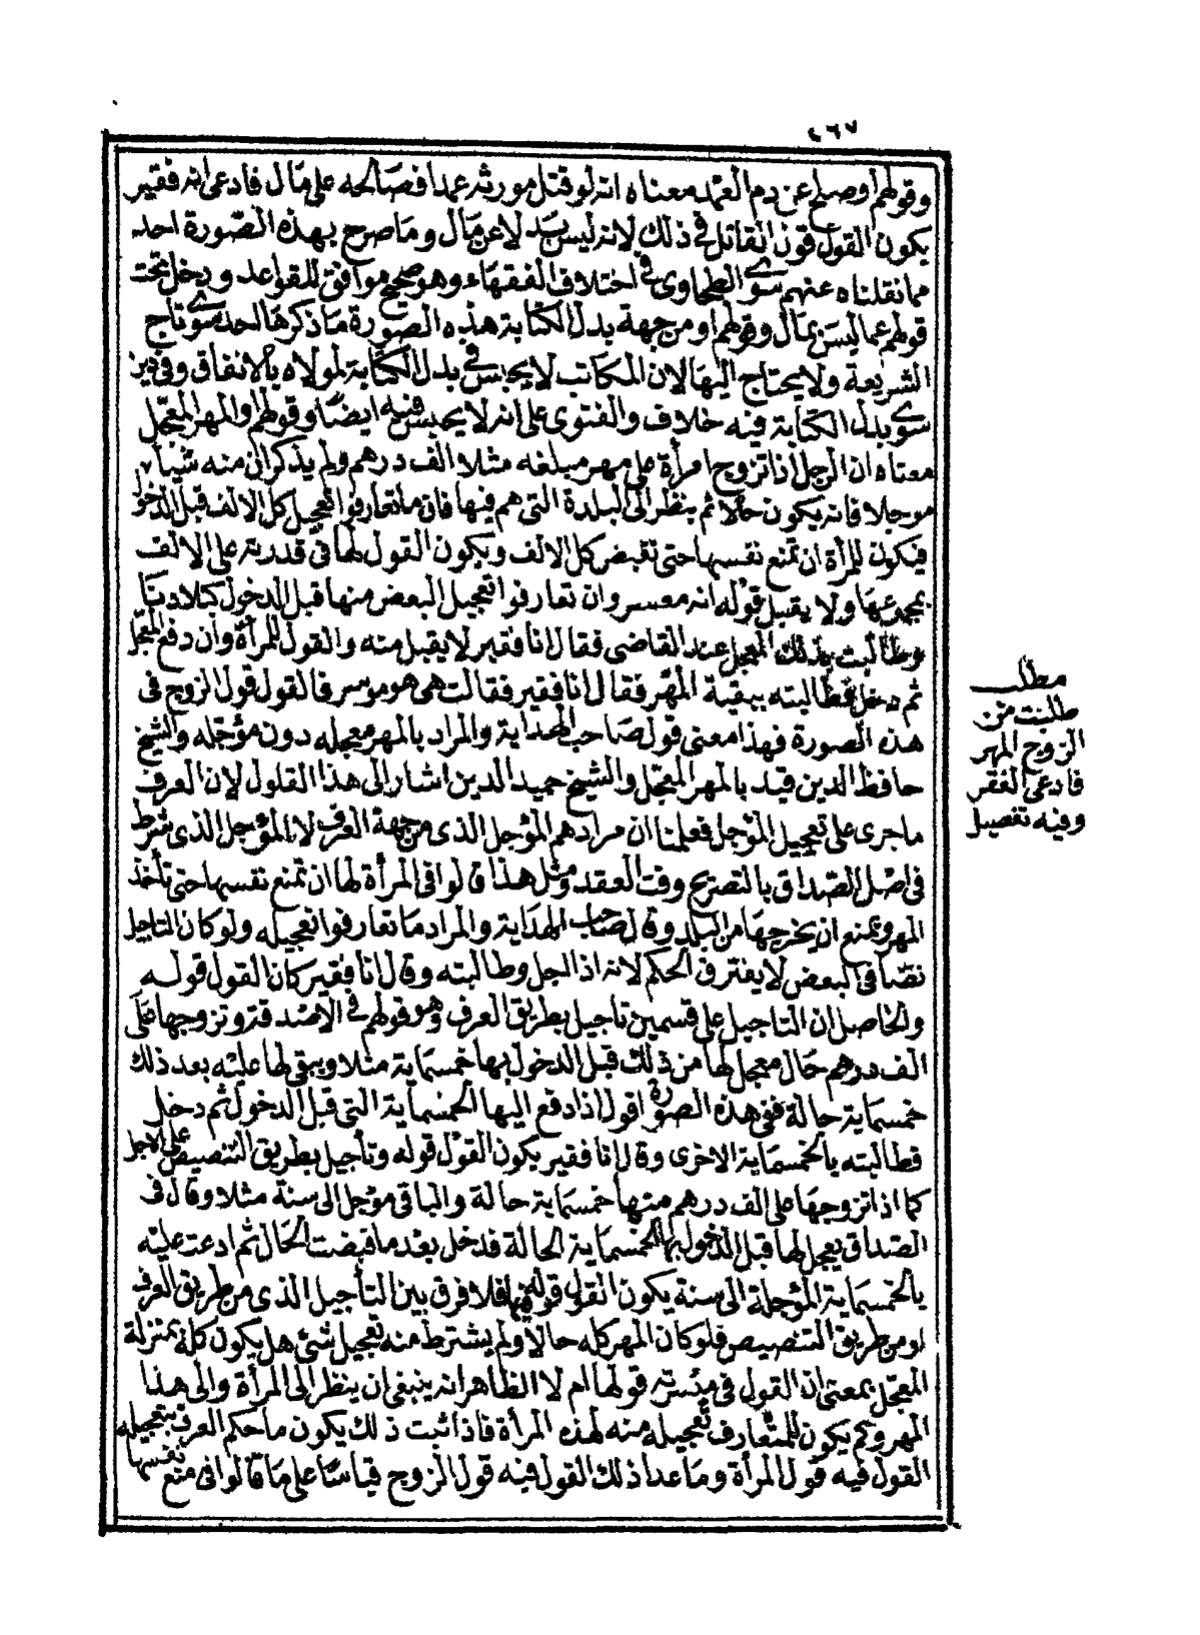 ٤٦٧
وقولهم او صلح عن دم العمد معناه انه لو قتل مورثه عمدا فصالحه على مال فادعى انه فقير
يكون القول قول القاتل في ذلك لانه ليس ببدلا عن مال وما صرح بهذه الصورة احد
مما نقلناه عنهم سوى الطحاوى في اختلاف الفقهاء وهو صحيح موافق للقواعد ويدخل تحت
قولهم عما ليس بمال وقولهم او من جهة بدل الكتابة هذه الصورة ما ذكرها احد سوى تاج
الشريعة ولا يحتاج اليها لان المكاتب لا يحبس في بدل الكتابة لمولاه بالانفاق وفى دين
سوى بدل الكتابة فيه خلاف والفتوى على انه لا يحبس فيه ايضا وقولهم والمهر المعجل
معناه ان الرجل اذا تزوج امرأة على مهر مبلغه مثلا الف درهم ولم يذكر ان منه شيأ
موجلا فانه يكون حالا ثم ينظر الى البلدة التى هم فيها فان ما تعارفوا تعجيل كل الالف قبل الدخول
فيكون للمرأة ان تمنع نفسها حتى تقبض كل الالف ويكون القول لها فى قدرته على الالف
بمجموعها ولا يقبل قوله انه معسر وان تعارفوا تعجيل البعض منها قبل الدخول كبلادنا
وطالبت بذلك المعجل عند القاضى فقال انا فقير لا يقبل منه والقول للمرأة وان دفع المعجل
ثم دخل فطالبته ببقية المهر فقال انا فقير فقالت هى هو موسر فالقول قول الزوج فى
هذه الصورة فهذا معنى قول صاحب الهداية والمراد بالمهر معجله دون مؤجله والشيخ
حافظ الدين قيد بالمهر المعجل والشيخ حميد الدين اشار الى هذا القلول لان العرف
ما جرى على تعجيل المؤجل فعلمنا ان مرادهم المؤجل الذى من جهة العرف لا المؤجل الذى شرط
فى اصل الصداق بالتصريح وقت العقد ومثل هذا قالوا فى المرأة لها ان تمنع نفسها حتى تأخذ
المهر وتمنع ان يخرجها من البلد وقال صاحب الهداية والمراد ما تعارفوا تعجيله ولو كان التاجيل
نصا فى البعض لا يفترق الحكم لانه اذا لجل وطالبته وقال انا فقير كان القول قوله
والحاصل ان التاجيل على قسمين تاجيل بطريق العرف وهو قولهم فى الاصدقة وتزوجها على
الف درهم حال معجل لها من ذلك قبل الدخول بها خمسماية مثلا ويبقى لها عليه بعد ذلك
خمسماية حالة ففى هذه الصورة اقول اذا دفع اليها الخمسماية التى قبل الدخول ثم دخل
فطالبته بالخمسماية الاخرى وقال انا فقير يكون القول قوله وتأجيل بطريق التنصيص على الاجل
كما اذا تزوجها على الف درهم منها خمسماية حالة والباقى مؤجل الى سنة مثلا وقال فى
الصداق يعجل لها قبل الدخول بها الخمسماية الحالة فدخل بعد ما قبضت الحال ثم ادعت عليه
بالخمسماية المؤجلة الى سنة يكون القول قوله فيها فلا فرق بين التأجيل الذى من طريق العرف
او من طريق التنصيص فلو كان المهر كله حالا ولم يشترط منه تعجيل شئ هل يكون كله بمنزلة
المعجل بمعنى ان القول فى ميسرته قولها ام لا الظاهر انه ينبغى ان ينظر الى المرأة والى هذا
المهر وكم يكون المتعارف تعجيله منه لهذه المرأة فاذا ثبت ذلك يكون ما حكم العرف بتعجيله
القول فيه قول المرأة وما عدا ذلك القول فيه قول الزوج قياسا على ما قالوا فى منع نفسها
مطلب
طلبت من
الزوج المهر
فادعى الفقر
وفيه تفصيل